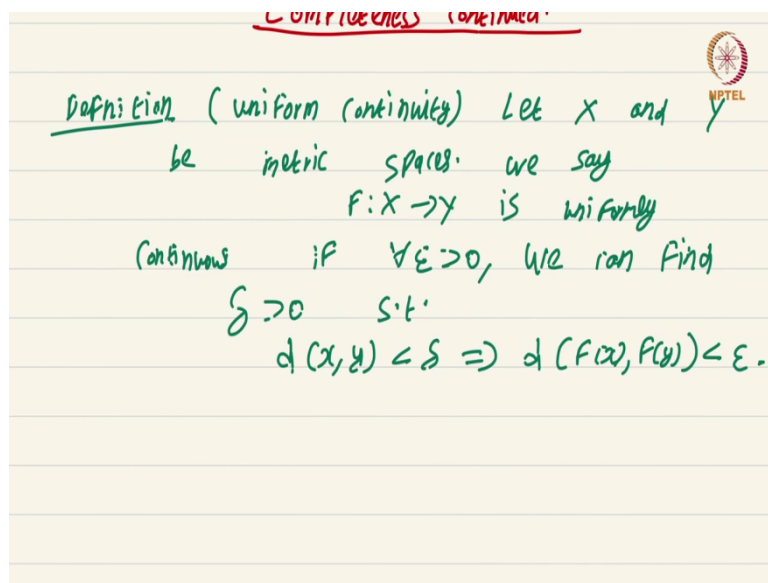 Compactness continued.
NPTEL
Defnition (uniform continuity) Let X and Y
be metric spaces. we say
F: X → Y is uniformly
continuous if ∀ε>0, we can find
δ>0 s.t.
d(x,y) < δ => d(F(x), F(y)) < ε.